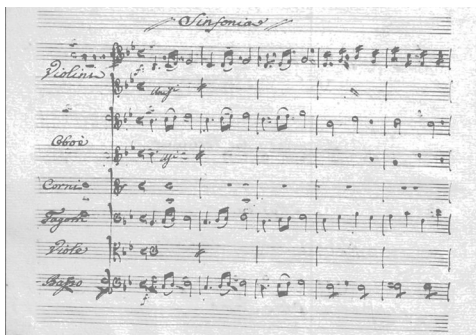 Sinfonia
Violini
Unis:
Oboè
Corni
Fagotti
Viole
Basso